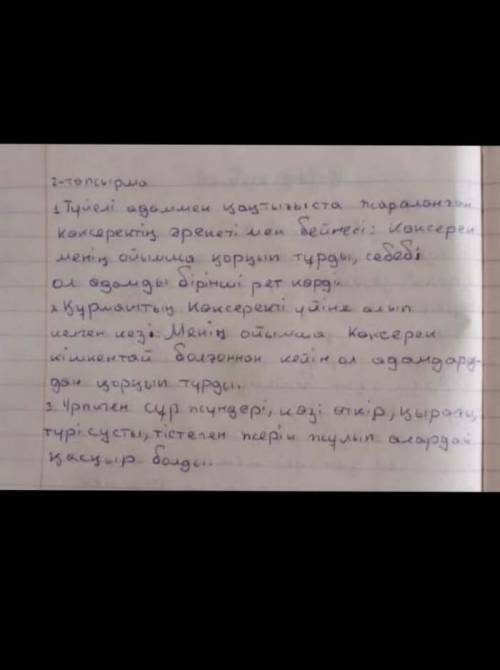 2-тапсырма
1. Түйелі адаммен қақтығыста жараланған
көксеректің әрекеті мен бейнесі: Көксерек
менің ойымша қорқып тұрды, себебі
ол адамды бірінші рет көрді
2. Құрмаштың Көксеректі үйіне алып
келген кезі: Менің ойымша Көксерек
кішкентай болғаннан кейін ол адамдар-
дан қорқып тұрды.
3. Үрпиген сұр жүндері, көзі өткір, қырағы,
түрі сұсты, тістеген жерін жұлып алардай
қасқыр болды.